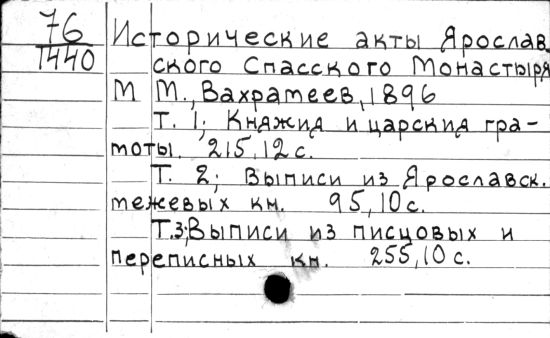 76
1440
Исторические акты Ярослав
ского Спасского Монастыря
М М., Вахрамеев, 1896
Т. 1; Княжия и царския гра-
моты. 215, 12 с.
Т. 2; Выписи из Ярославск.
межевых кн. 95, 10 с.
Т.3; Выписи из писцовых и
переписных кн. 255, 10 с.